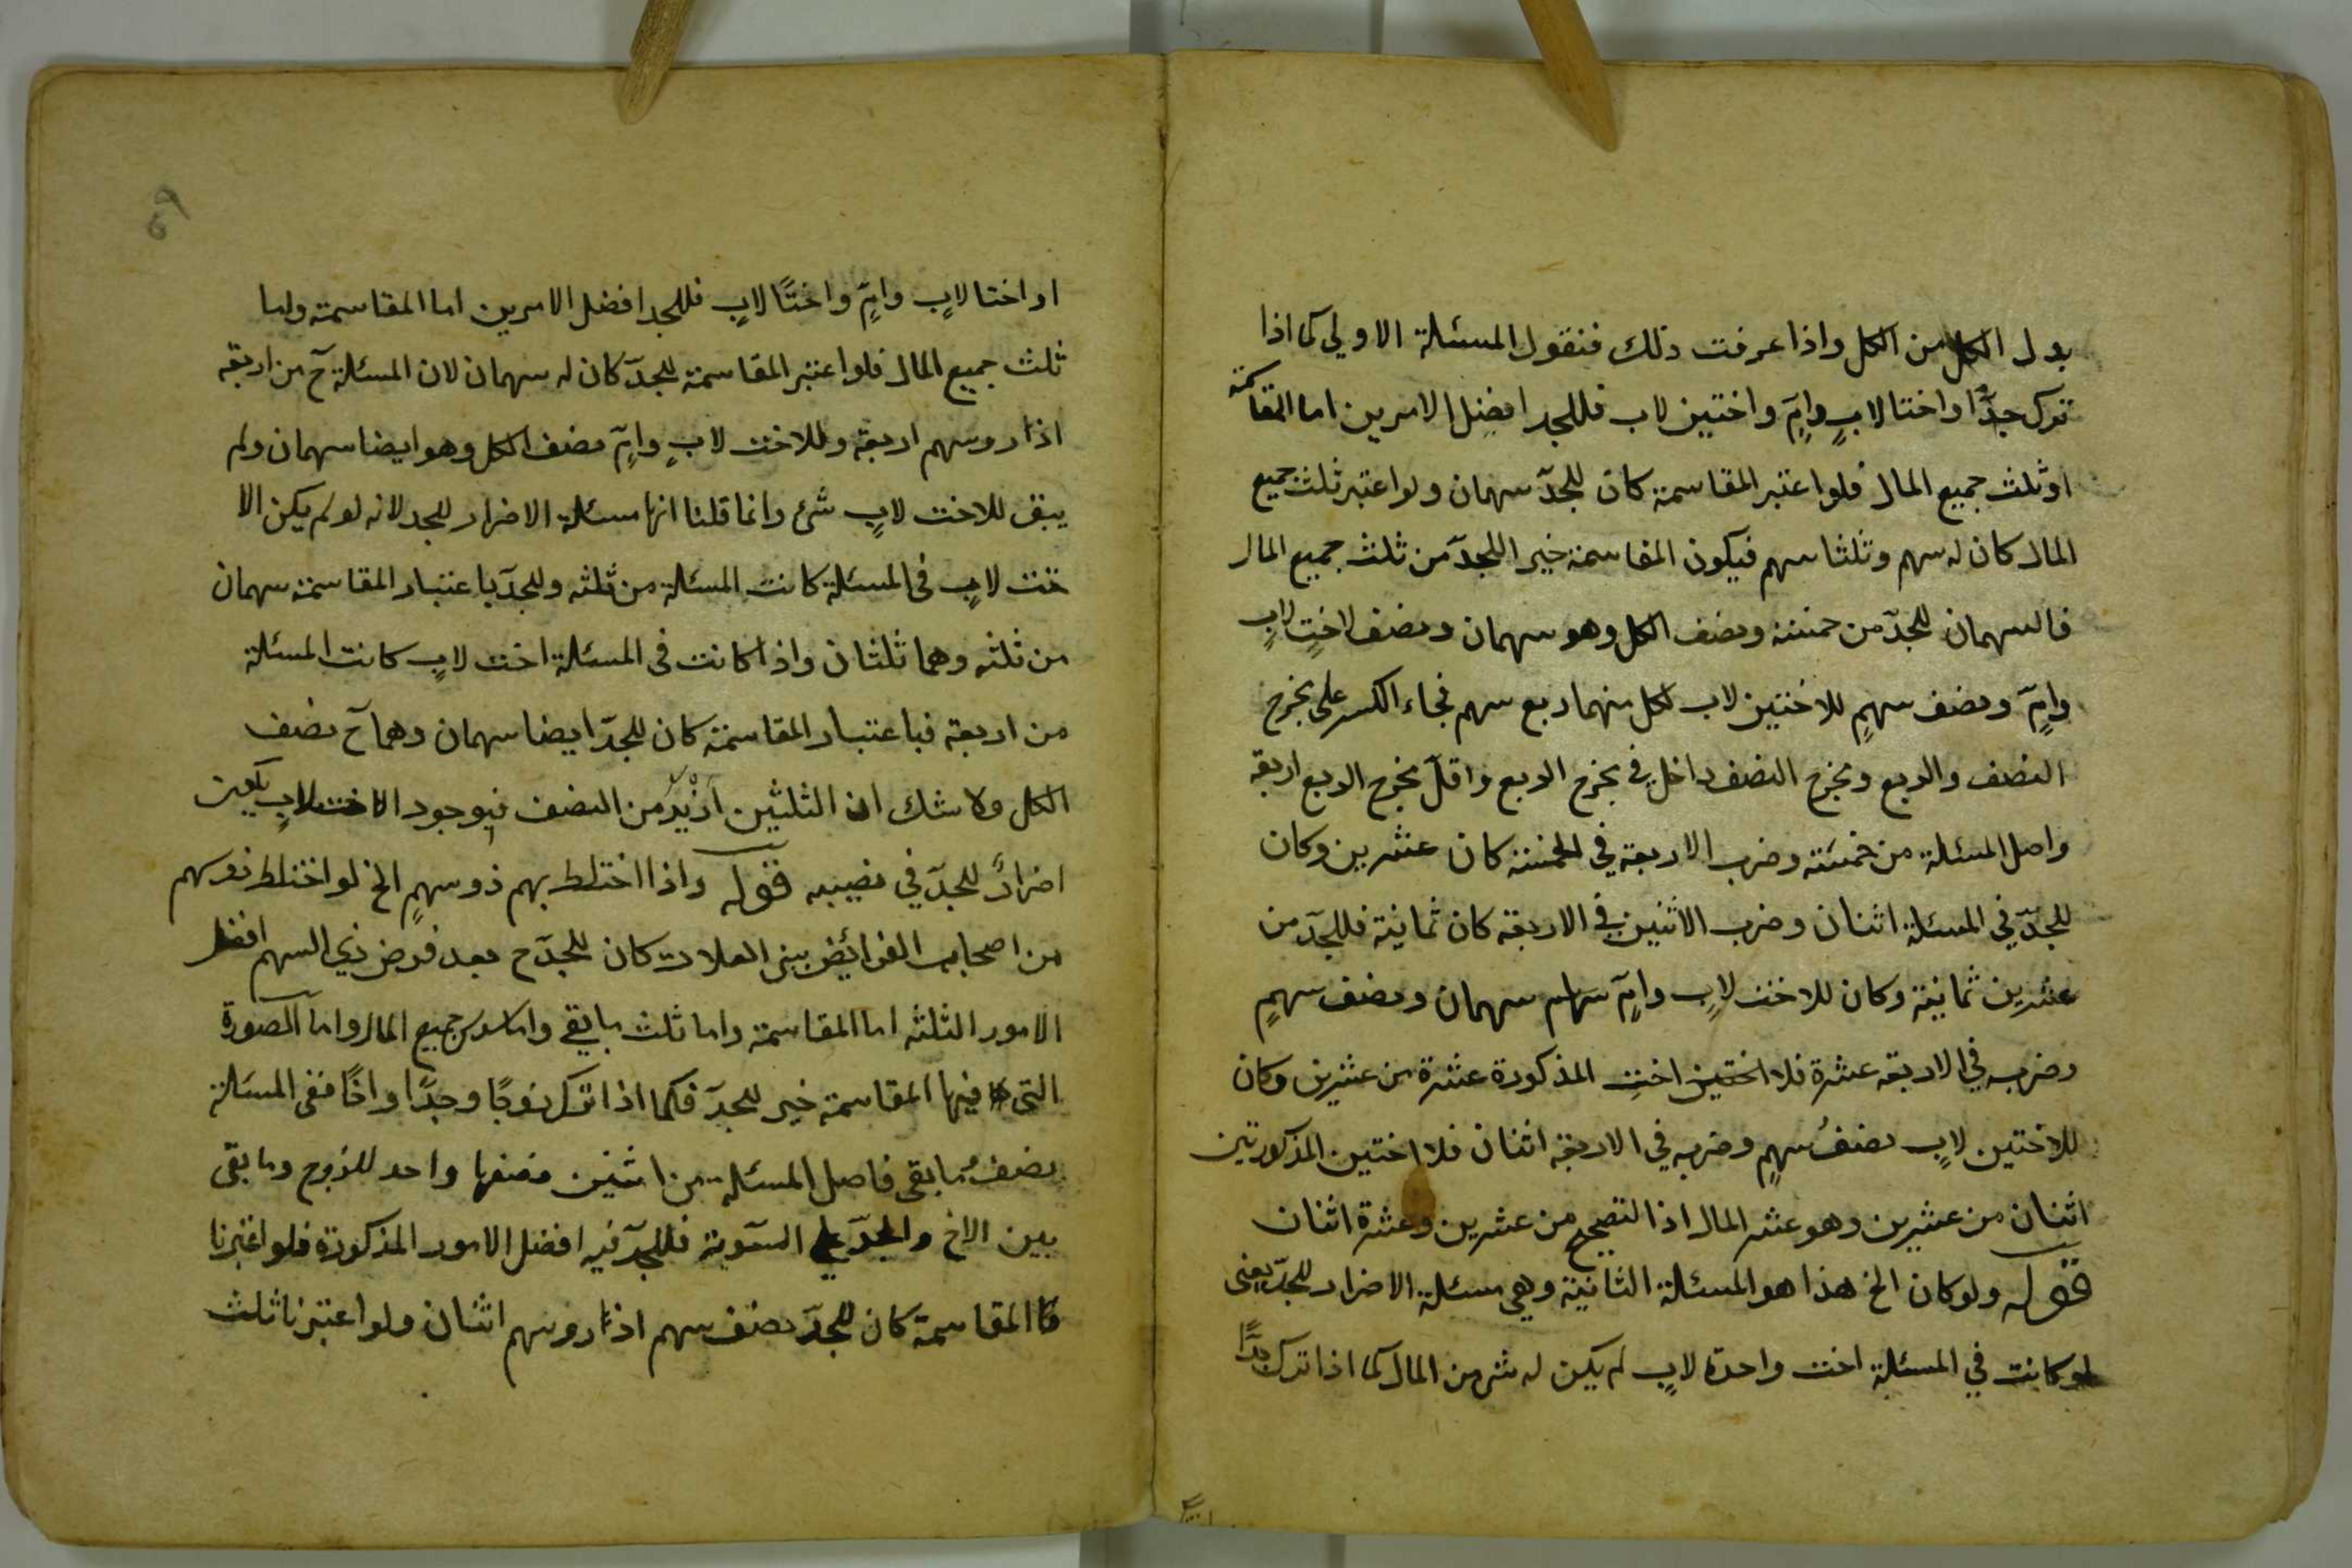 بدل الكل من الكل واذا عرفت ذلك فنقول المسئلة الاولى كما اذا
ترك جدّا واختا لابٍ وامٍّ واختين لاب فللجد افضل الامرين اما المقاسمة
او ثلث جميع المال فلو اعتبر المقاسمة كان للجدّ سهمان ولو اعتبر ثلث جميع
المال كان له سهم وثلثا سهم فيكون المقاسمة خيرا للجدّ من ثلث جميع المال
فالسهمان للجدّ من خمسة ونصف الكل وهو سهمان ونصف لاختٍ لابٍ
وامٍّ ونصف سهمٍ للاختين لاب لكل منهما ربع سهم فجاء الكسر على مخرج
النصف والربع ومخرج النصف داخل في مخرج الربع واقلّ مخرج الربع اربعة
واصل المسئلة من خمسة وضرب الاربعة في الخمسة كان عشرين وكان
للجدّ في المسئلة اثنان وضرب الاثنين في الاربعة كان ثمانية فللجدّ من
عشرين ثمانية وكان للاخت لابٍ وامٍّ سهام سهمان ونصف سهمٍ
وضرب في الاربعة عشرة فلا اختين اختٍ المذكورة عشرة من عشرين وكان
للاختين لابٍ نصفُ سهمٍ وضربه في الاربعة اثنان فلا اختين المذكورتين
اثنان من عشرين وهو عشر المال اذا التصحيح من عشرين وعشرة اثنان
قوله ولو كان الخ هذا هو المسئلة الثانية وهي مسئلة الاضرار للجدّ يعنى
لو كانت في المسئلة اخت واحدة لابٍ لم يكن له شئ من المال كما اذا ترك جدًّا
او اختا لابٍ وامٍّ واختًا لابٍ فللجد افضل الامرين اما المقاسمة واما
ثلث جميع المال فلو اعتبر المقاسمة للجدّ كان له سهمان لان المسئلة ح من اربعة
اذا روسهم اربعة وللاخت لابٍ وامٍّ نصف الكل وهو ايضا سهمان ولم
يبق للاخت لابٍ شئ وانما قلنا انها مسئلة الاضرار للجد لانه لو لم يكن الا
خت لابٍ فى المسئلة كانت المسئلة من ثلثه وللجدّ باعتبار المقاسمة سهمان
من ثلثه وهما ثلثان واذا كانت فى المسئلة اخت لابٍ كانت المسئلة
من اربعة فباعتبار المقاسمة كان للجدّ ايضا سهمان وهما ح نصف
الكل ولا شك ان الثلثين ازيد من النصف فبوجود الاخت لابٍ يكون
اضرارً للجدّ في نصيبه قوله واذا اختلط بهم ذو سهمٍ الخ لو اختلط ذو سهم
من اصحاب الفرائض ببنى العلات كان للجدّ ح بعد فرض ذي السهم افضل
الامور الثلثه اما المقاسمة واما ثلث ما بقي واما سدس جميع المال واما الصورة
التى فيها المقاسمة خير للجدّ فكما اذا ترك زوجًا وجدًا واخًا ففى المسئلة
نصفُ ما بقى فاصل المسئلة من اثنين فنصفها واحد للزوج وما بقى
بين الاخ والجدّ على السّوية فللجدّ فيه افضل الامور المذكورة فلو اعتبرنا
المقاسمة كان للجدّ نصف سهم اذا روسهم اثنان ولو اعتبرنا ثلث